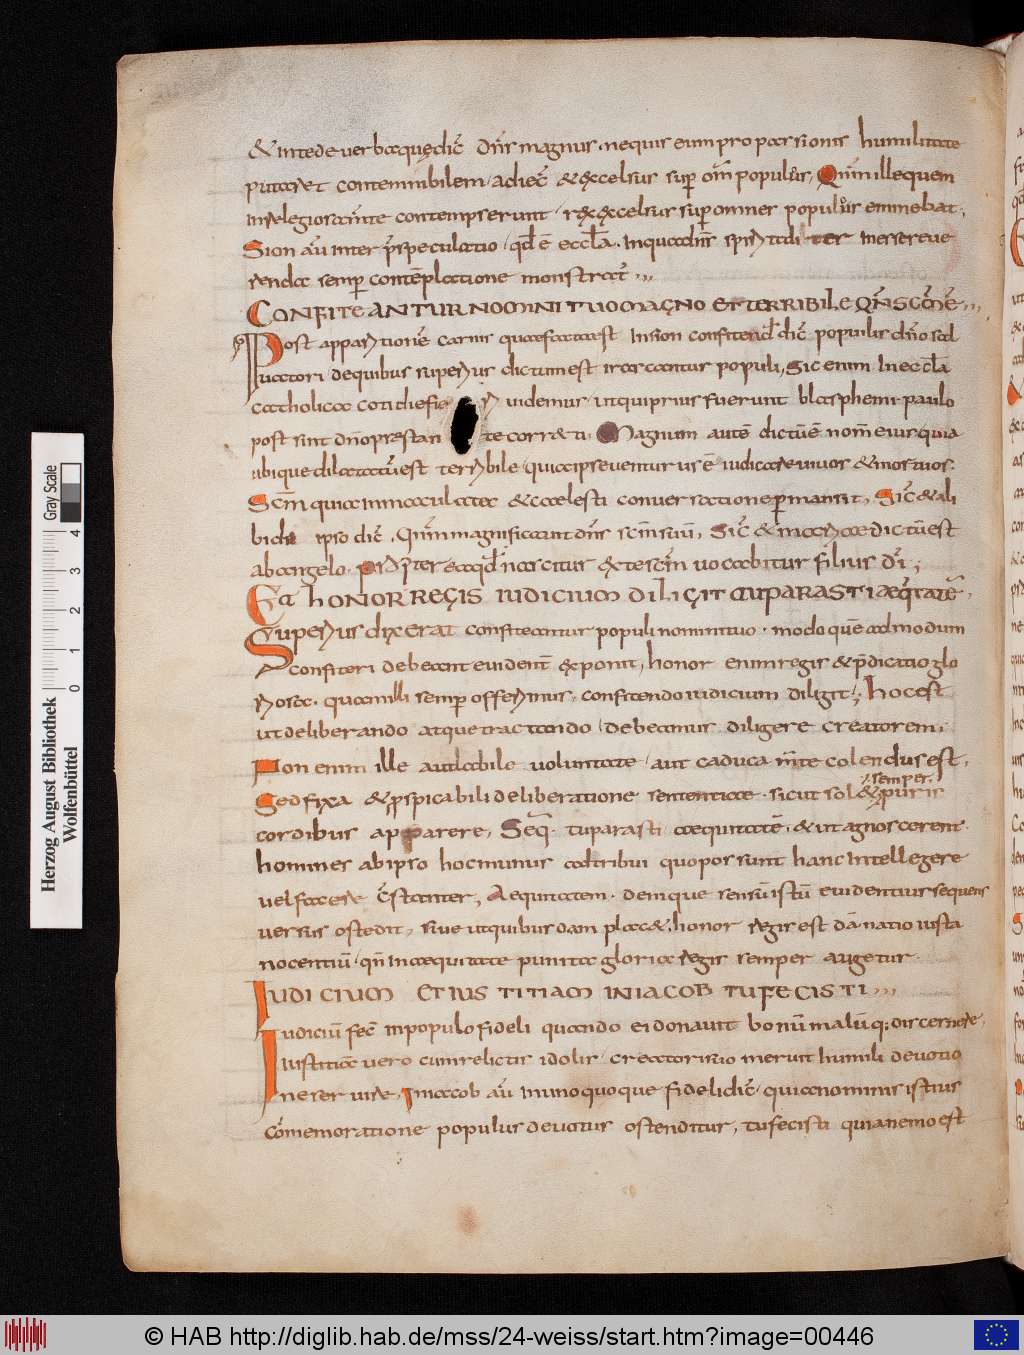 & intede uerba quę dic̄ dn̄s magnus. nequis eum pro passionis humilitate
putaret contemnibilem adiec̄ & excelsus sup om̄ populus, Qm̄ ille quem
contempserunt excelsus sup omnes populos eminebat;
Sion au inter p̄speculatio qd ē eccla. in qua dn̄s
rendae semp contēplatione monstrat
CONFITEANTUR NOMNI TUO MAGNO ET TERRIBILE QM̄ SCM̄ Ē
Post apparitionē carnis quae facta est in sion confitend dic̄ populis dn̄o sal
uatori de quibus superius dictum est irascantur populi, Sic enim in eccla
catholica cotidie fie ri uidemus ut qui prius fuerunt blasphemi paulo
post sint dn̄o praestan te correcti. Magnum autē dictū ē nom̄ eius quia
ubique dilatatū est terribile quia ipse uenturus ē iudicare uiuos & mortuos.
Scm̄ quia inmaculatae & caelesti conuersatione permansit, Sic̄ & ali
bi de ipso dic̄, Qm̄ magnificauit dn̄s scm̄ suū, Sic̄ & mariae dictū est
ab angelo. nascitur ex te scm̄ uocabitur filius dī;
Et HONOR REGIS IUDICIUM DILIGIT TU PARASTI AEQ̄TATĒ
Superius dixerat confiteantur populi nomini tuo. modo quē ad modum
confiteri debeant euidenter exponit, honor enim regis & p̄dicatio glo
riosa. quam illi semp offerimus. confitendo iudicium diligit; hoc est
ut deliberando atque tractando debeamus diligere creatorem;
Non enim ille uoluntate aut caduca m̄te colendus est,
semper.
Sed fixa & pspicabili deliberatione sententiae. sicut sol & puris
cordibus apparere, Seq. tu parasti aequitatē, & ut agnoscerent
homines ab ipso hoc munus adtribui quo possunt hanc intellegere
uel facere cstanter, Aequitatem. denique sensū istū euidentius sequens
uersus ostedit, siue ut quibusdam placet. honor regis est dānatio iusta
nocentiū qn̄ in aequitate punita gloria regis semper augetur.
IUDICIUM ET IUSTITIAM IN IACOB TU FECISTI
Iudiciū fec̄ in populo fideli quando ei donauit bonū malūq; discernere,
iustitia uero cum relictis idolis creatori suo meruit humili deuotio
ne seruire, in iacob au in unoquoque fideli dic̄. quia nominis istius
cōmemoratione populus deuotus ostenditur, tu fecisti quia nemo est
Herzog August Bibliothek
Wolfenbüttel
0 1 2 3 4
Gray Scale
© HAB http://diglib.hab.de/mss/24-weiss/start.htm?image=00446